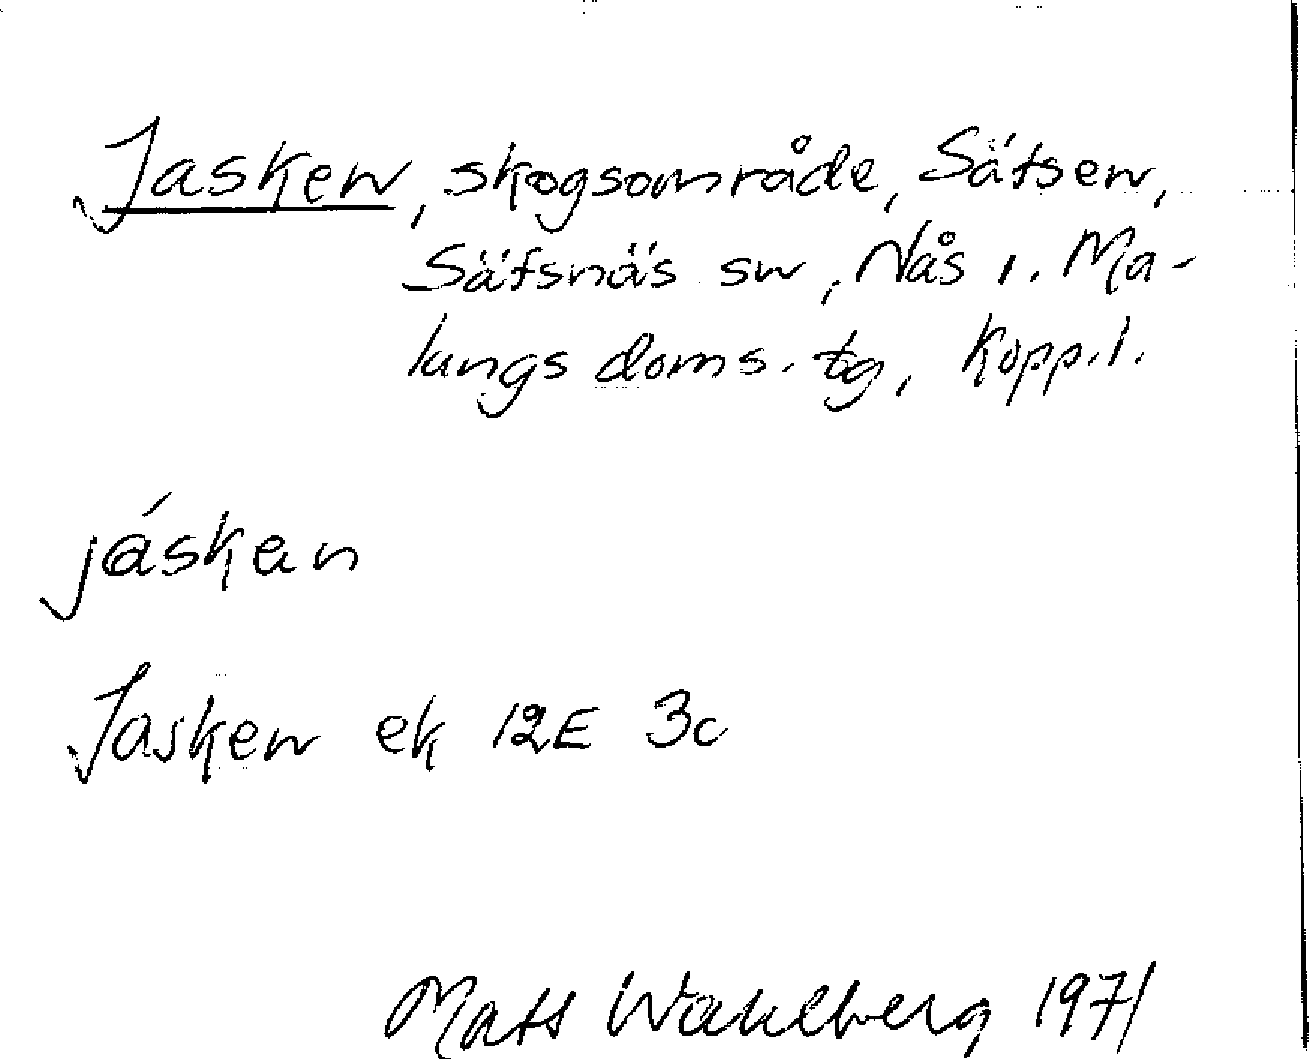 Jasken, skogsområde, Sätsen,
Säfsnäs sn, Nås o. Ma-
lungs doms. tg, Kopp.l.
jáskan
Jasken ek 12E 3c
Mats Wahlberg 1971